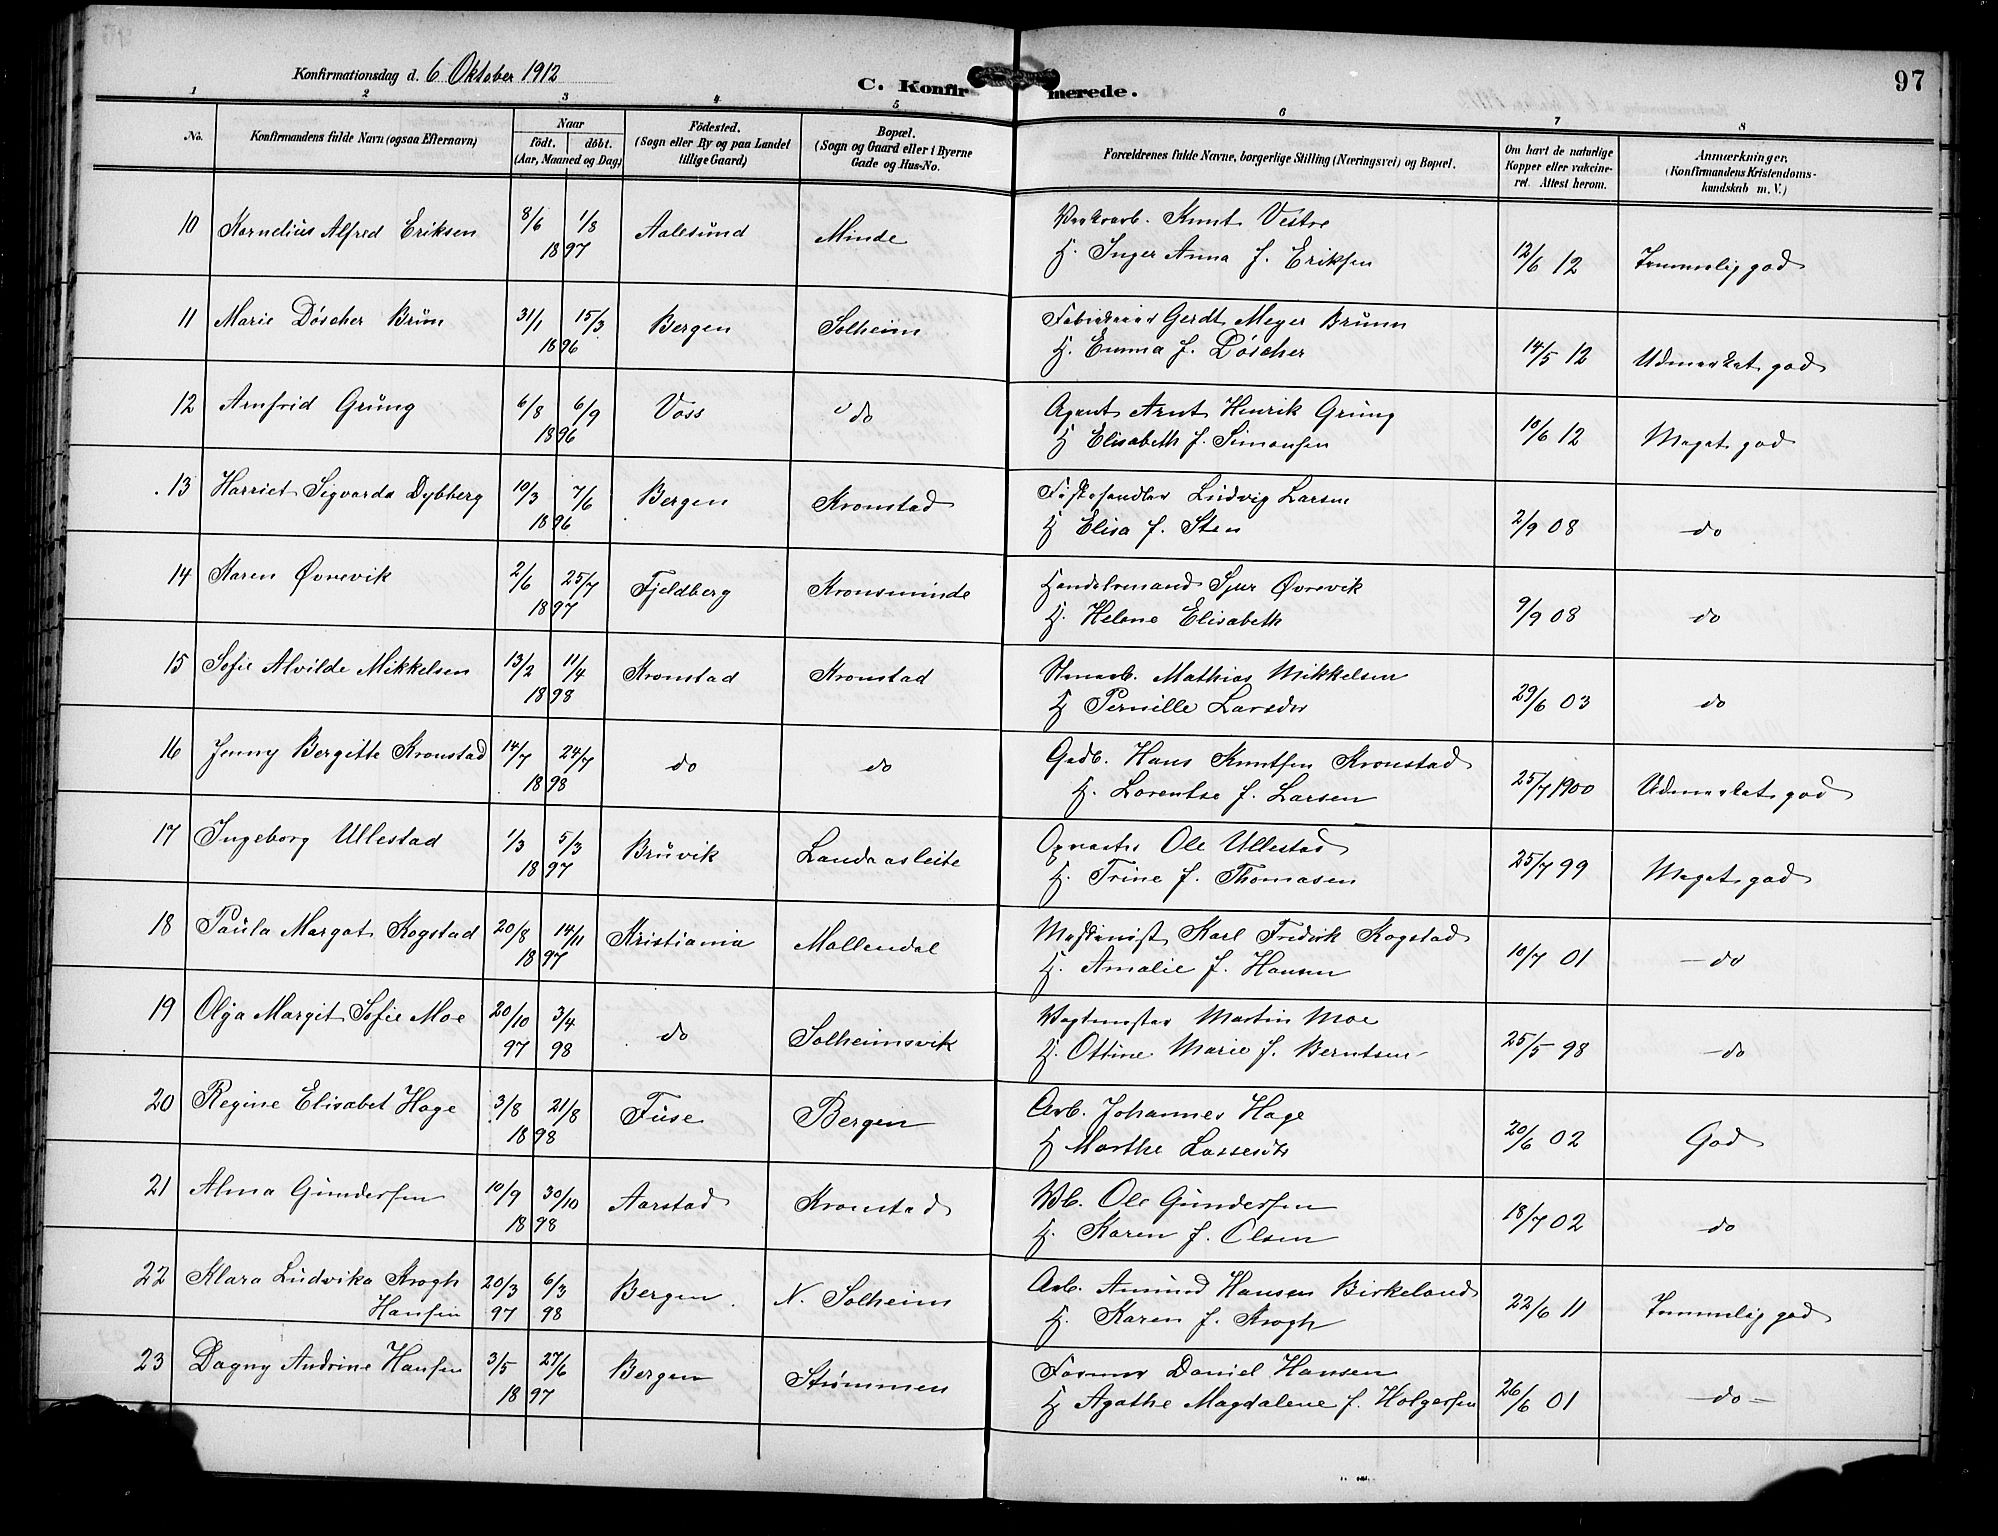 Konfirmationsdag d. 6 Oktober 1912
C. Konfirmerede.
97
1 2 3 4 5 6 7 8
No.
Konfirmandens fulde Navn (ogsaa Efternavn)
Naar
født. døbt.
(Aar, Maaned og Dag)
Fødested.
(Sogn eller By og paa Landet
tillige Gaard)
Bopæl.
(Sogn og Gaard eller i Byerne
Gade og Hus-No.
Forældrenes fulde Navne, borgerlige Stilling (Næringsvei) og Bopæl.
Om havt de naturlige
Kopper eller vakcine-
ret. Attest herom.
Anmærkninger,
(Konfirmandens Kristendoms-
kundskab m. V.)
10 Kornelius Alfred Eriksen 8/6 1/8 1897 Aalesund Minde
Knut Vestre
H. Inger Anna f. Eriksen 12/6 12 Temmelig god
11 Marie Döscher Brün 31/1 15/3 1896 Bergen Solheim
Gerdt Meyer Brünn
H. Emma f. Döscher 14/5 12 Udmerket god
12 Arnfrid Grüng 6/8 6/9 1896 Voss do
Agent Arnt Henrik Grüng
H Elisabeth f. Simonsen 10/6 12 Meget god
13 Harriet Sigvarda Dybberg 10/3 7/6 1896 Bergen Kronstad
Fiskehandler Lüdvig Larsen
H Elisa f. Sten 2/9 08 do
14 Karen Øvrevik 2/6 25/7 1897 Fjeldberg Kronsminde
Handelsmand Sjur Øvrevik
H. Helene Elisabeth 9/9 08 do
15 Sofie Alvilde Mikkelsen 13/2 11/4 1898 Kronstad Kronstad
Stenarb. Mathias Mikkelsen
H Pernille Larsdtr 29/6 03 do
16 Jenny Bergitte Kronstad 14/7 24/7 1898 do do
Gadb. Hans Knutsen Kronstad
H. Lorentse f. Larsen 25/7 1900 Udmerket god
17 Ingeborg Ullestad 1/3 5/3 1897 Brüvik Landaasleite
Ole Ullestad
H. Trine f. Thomasen 25/7 99 Meget god
18 Paüla Margot Kogstad 20/8 14/11 1897 Kristiania Møllendal
Maskinist Karl Fredrik Kogstad
H. Amalie f. Hansen 10/7 01 do
19 Olga Margit Sofie Moe 20/10 97 3/4 98 do Solheimsvik
Vagtmester Martin Moe
H. Ottine Marie f. Berntsen 25/5 98 do
20 Regine Elisabet Hage 3/8 21/8 1898 Füse Bergen
Arb. Johannes Hage
H Marthe Lassesdtr 20/6 02 God
21 Alma Gündersen 10/9 30/10 1898 Aarstad Kronstad
Ole Gündersen
H. Karen f. Olsen 18/7 02 do
22 Klara Lüdvika Krogh
Hansen 20/3 97 6/3 98 Bergen N. Solheim
Arb. Amünd Hansen Birkeland
H. Karen f. Krogh 22/6 11 Temmelig god
23 Dagny Andrine Hansen 3/5 27/6 1897 Bergen Strømmen
Daniel Hansen
H Agathe Magdalene f. Holgersen 26/6 01 do